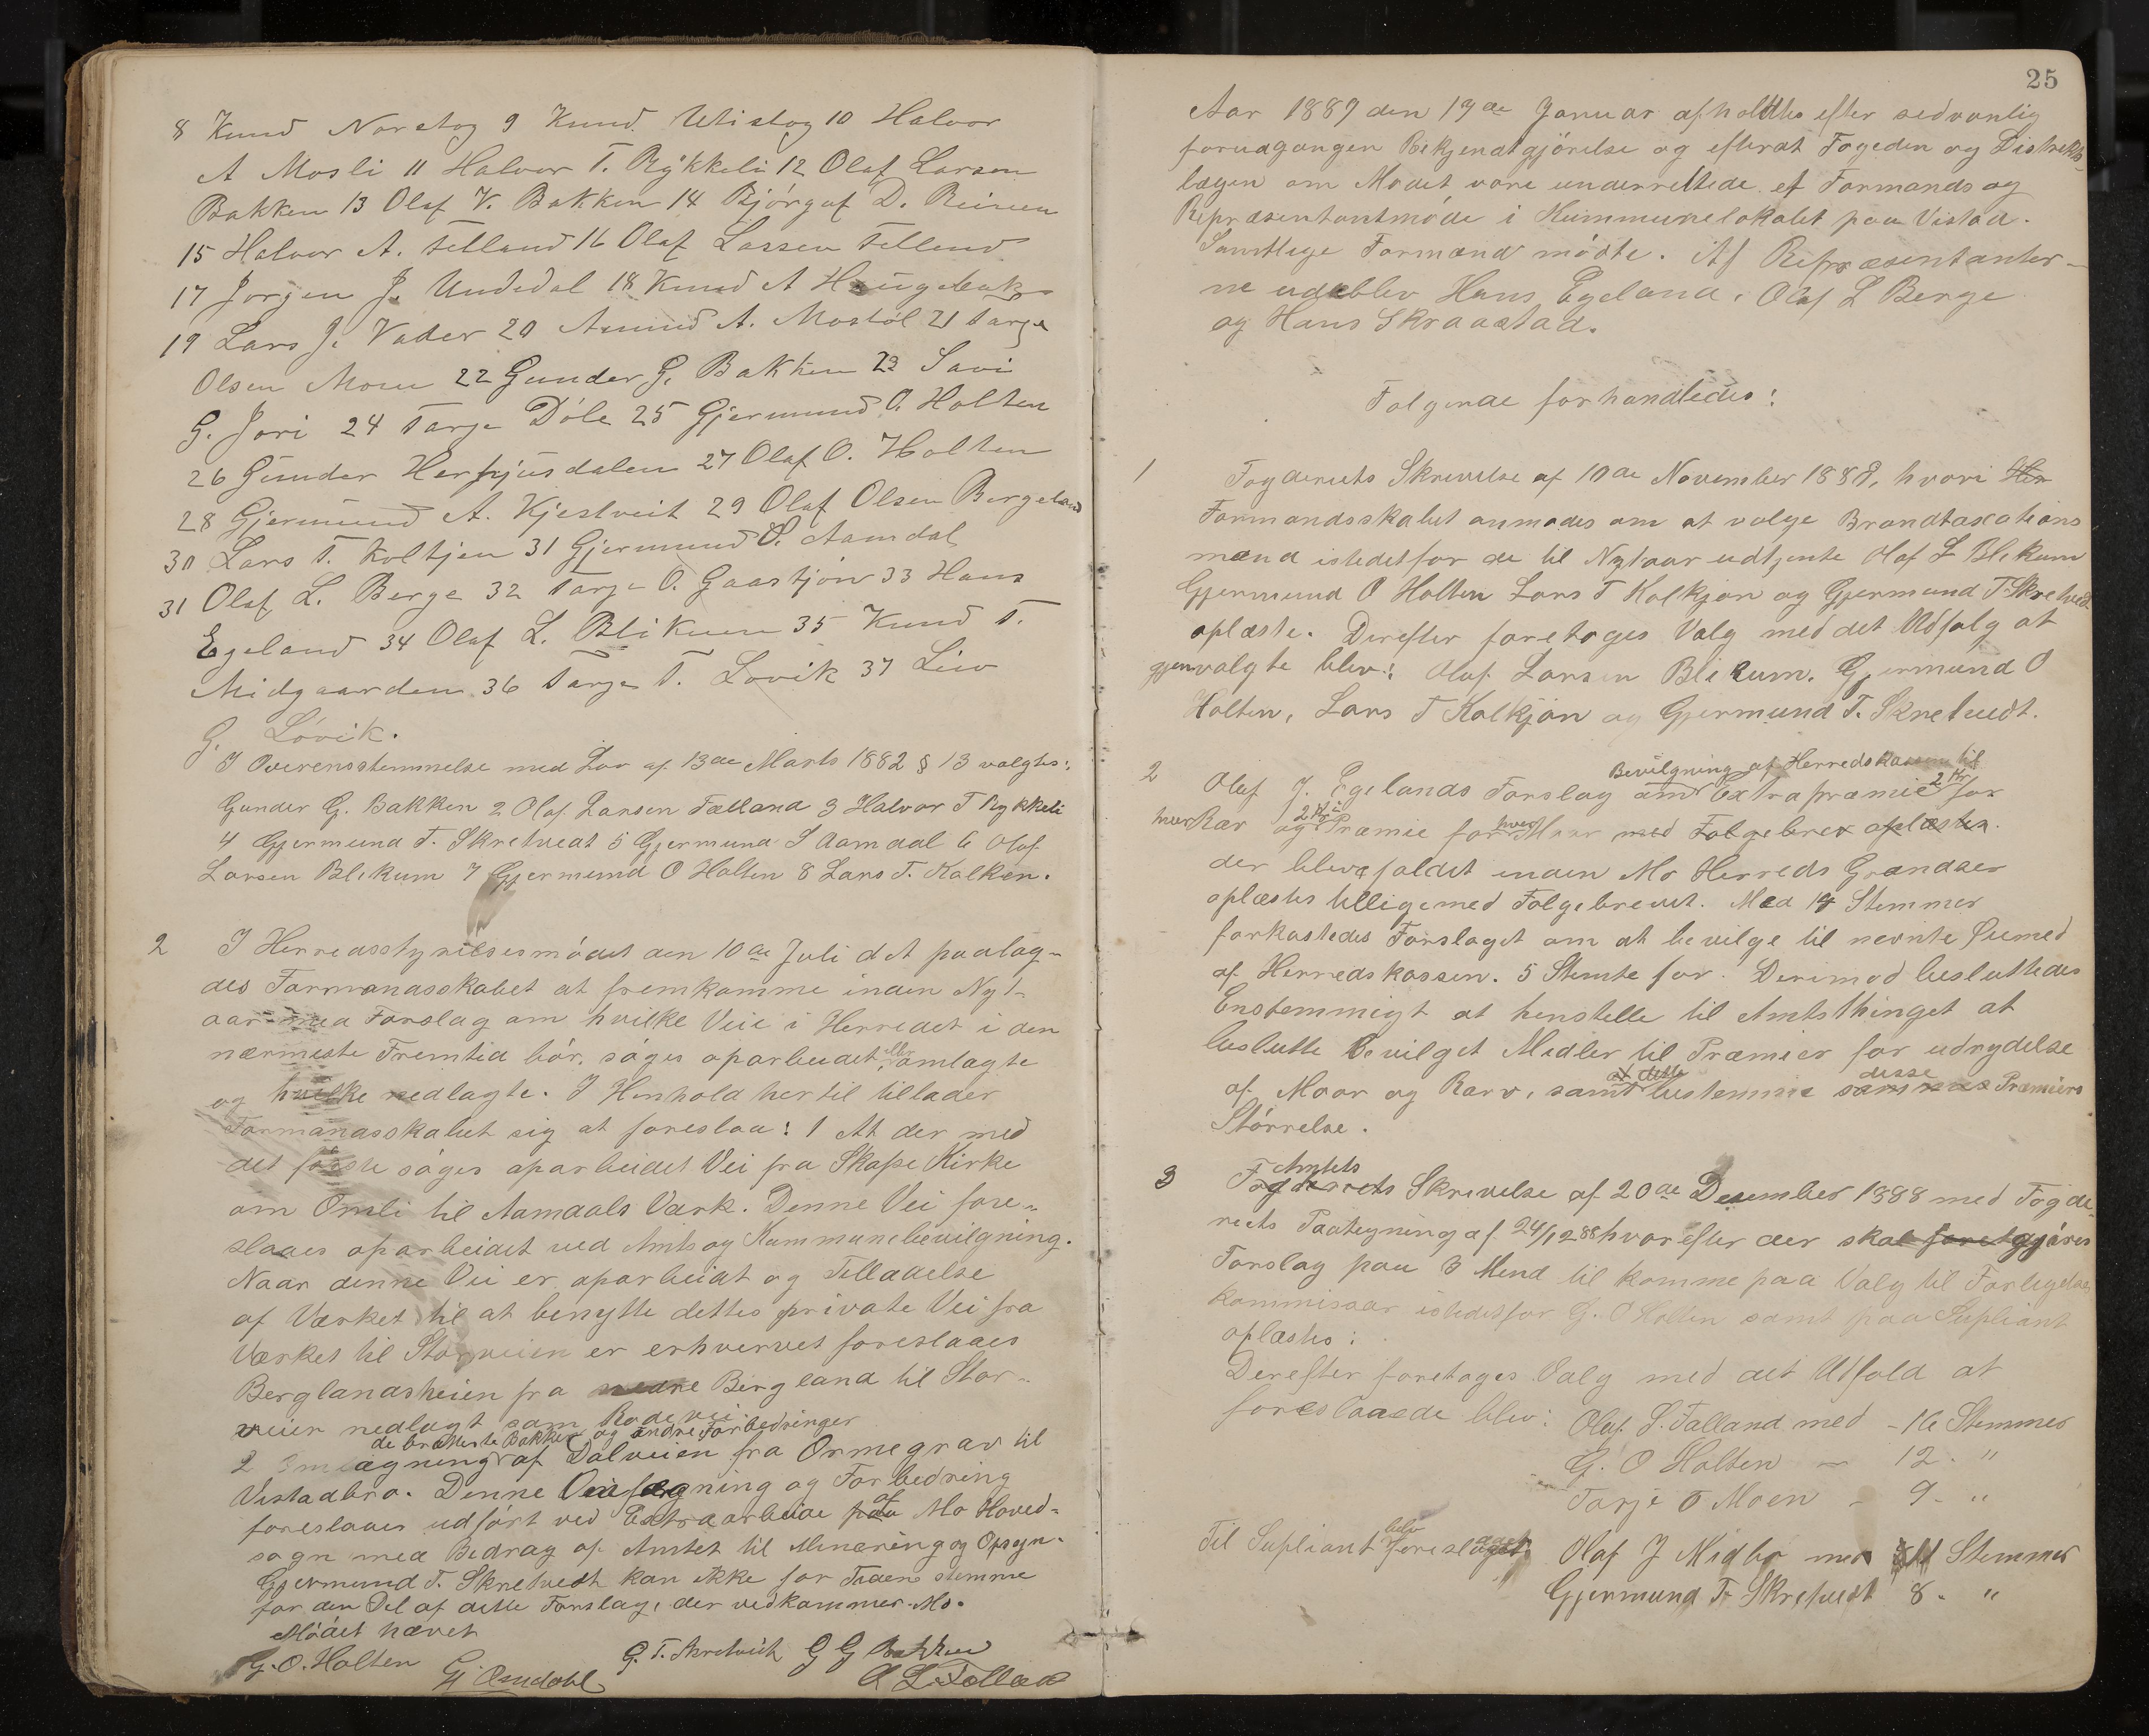 8 Knud Norstog 9 Knud Utistog 10 Halvor
A Mosli 11 Halvor T. Rykkeli 12 Olaf Larsen
Bakken 13 Olaf V. Bakken 14 Bjørguf D. Reinen
15 Halvor A. Felland 16 Olaf Larsen Felland
17 Jørgen J. Undedal 18 Knud A Haugebak
19 Lars J. Vader 20 Asmund A. Mostøl 21 Tarje
Olsen Moen 22 Gunder G. Bakken 23 Savi
G. Jori 24 Tarje Døle 25 Gjermund O. Holten
26 Gunder Herfjusdalen 27 Olaf O. Holten
28 Gjermund A. Kjestveit 29 Olaf Olsen Bergeland
30 Lars T. Koltjen 31 Gjermund S. Aamdal
31 Olaf L. Berge 32 Tarje O. Gaastjøn 33 Hans
Egeland 34 Olaf L. Blikum 35 Knud T.
Midgaarden 36 Tarje T. Lovik 37 Liv
G. Løvik.
I Overensstemmelse med Lov af 13de Marts 1882 § 13 valgtes:
Gunder G. Bakken 2 Olaf Larsen Fælland 3 Halvor T Rykkeli
4 Gjermund T. Skretvedt 5 Gjermund S Aamdal 6 Olaf
Larsen Blikum 7 Gjermund O Holten 8 Lars T. Kalken.
2 I Herredsstyrelsesmødet den 10de Juli d A paalag-
des Formandsskabet at fremkomme inden Nyt-
aar med Forslag om hvilke Veie i Herredet i den
nærmeste Fremtid bør søges oparbeidet, eller omlagte
og hvilke nedlagte. I Henhold hertil tillader
Formandsskabet sig at foreslaa: 1 At der med
det første søges oparbeidet Vei fra Skafse Kirke
om Omli til Aamdals Værk. Denne Vei fore-
slaaes oparbeidet ved Amts og Kommunebevilgning.
Naar denne Vei er oparbeidt og Tilladelse
af Værket til at benytte dettes private Vei fra
Værket til Storveien er erhvervet foreslaaes
Berglandsheien fra nedre Bergland til Stor-
veien nedlagt som Rodevei.
de bratteste Bakker og andre Forbedringer
2 Omlægning af Dalveien fra Ormegrav til
Vistadbro. Denne Omlægning og Forbedring
foreslaaes udført ved Extraarbeide af Mo Hoved-
sogn med Bidrag af Amtet til Minering og Opsyn.
Gjermund T. Skretvedt kan ikke for Tiden stemme
for den Del af dette Forslag, der vedkommer Mo.
Mødet hævet
G. O. Holten G. Aamdahl G. T. Skretvedt G G Bakken
O L Felland
25
Aar 1889 den 19de Januar afholdtes efter sedvanlig
forudgangen Bekjendtgjørelse og efterat Fogeden og Distrikts-
lægen om Mødet vare underrettede et Formands og
Repræsentantmøde i Kommunelokalet paa Vistad.
Samtlige Formænd mødte. Af Repræsentanter-
ne udeblev Hans Egeland, Olaf L Berge
og Hans Skraastad.
Følgende forhandledes:
1 Fogderiets Skrivelse af 10de November 1888, hvori Her
Formandsskabet anmodes om at vælge Brandtaxations
mænd istedetfor de til Nytaar udtjente Olaf L Blikum
Gjermund O Holten Lars T Kolkjøn og Gjermund T Skretvedt
oplæste. Derefter foretoges Valg med det Udfalg at
gjenvalgte blev: Olaf Larsen Blikum. Gjermund O
Holten, Lars T Kalkjøn og Gjermund T. Skretvedt.
Bevilgning af Herredskassen til
2 Olaf J. Egelands Forslag om Extrapræmie 2 Kr for
hver Rær og 2 Kr i Præmie for hver Maar med Følgebrev oplæstes.
der blev fældet inden Mo Herreds Grændser
oplæstes tilligemed Følgebrevet. Med 19 Stemmer
forkastedes Forslaget om at bevilge til nevnte Øiemed
af Herredskassen. 5 Stemte for. Derimod besluttedes
Enstemmigt at henstille til Amtsthinget at
beslutte Bevilget Midler til Præmier for udrydelse
af Maar og Rærv, samt at dette bestemmer sammes disse Præmiers
Størrelse.
Amtets
3 Fogderiets Skrivelse af 20de Desember 1888 med Fogde-
riets Paategning af 24/12 88 hvorefter der skal foret gjøres
Forslag paa 3 Mend til komme paa Valg til Forligelses
kommissær istedetfor G. O Holten samt paa Supliant
oplæstes:
Derefter foretoges Valg med det Utfald at
foreslaaede blev: Olaf L. Falland med - 16 Stemmer
G. O Holten — 12. "
Tarje O Moen - 9. "
Til Supliant blev foreslaaet: Olaf J Midbø med 11 Stemmer
Gjermund T. Skretvedt 8. "